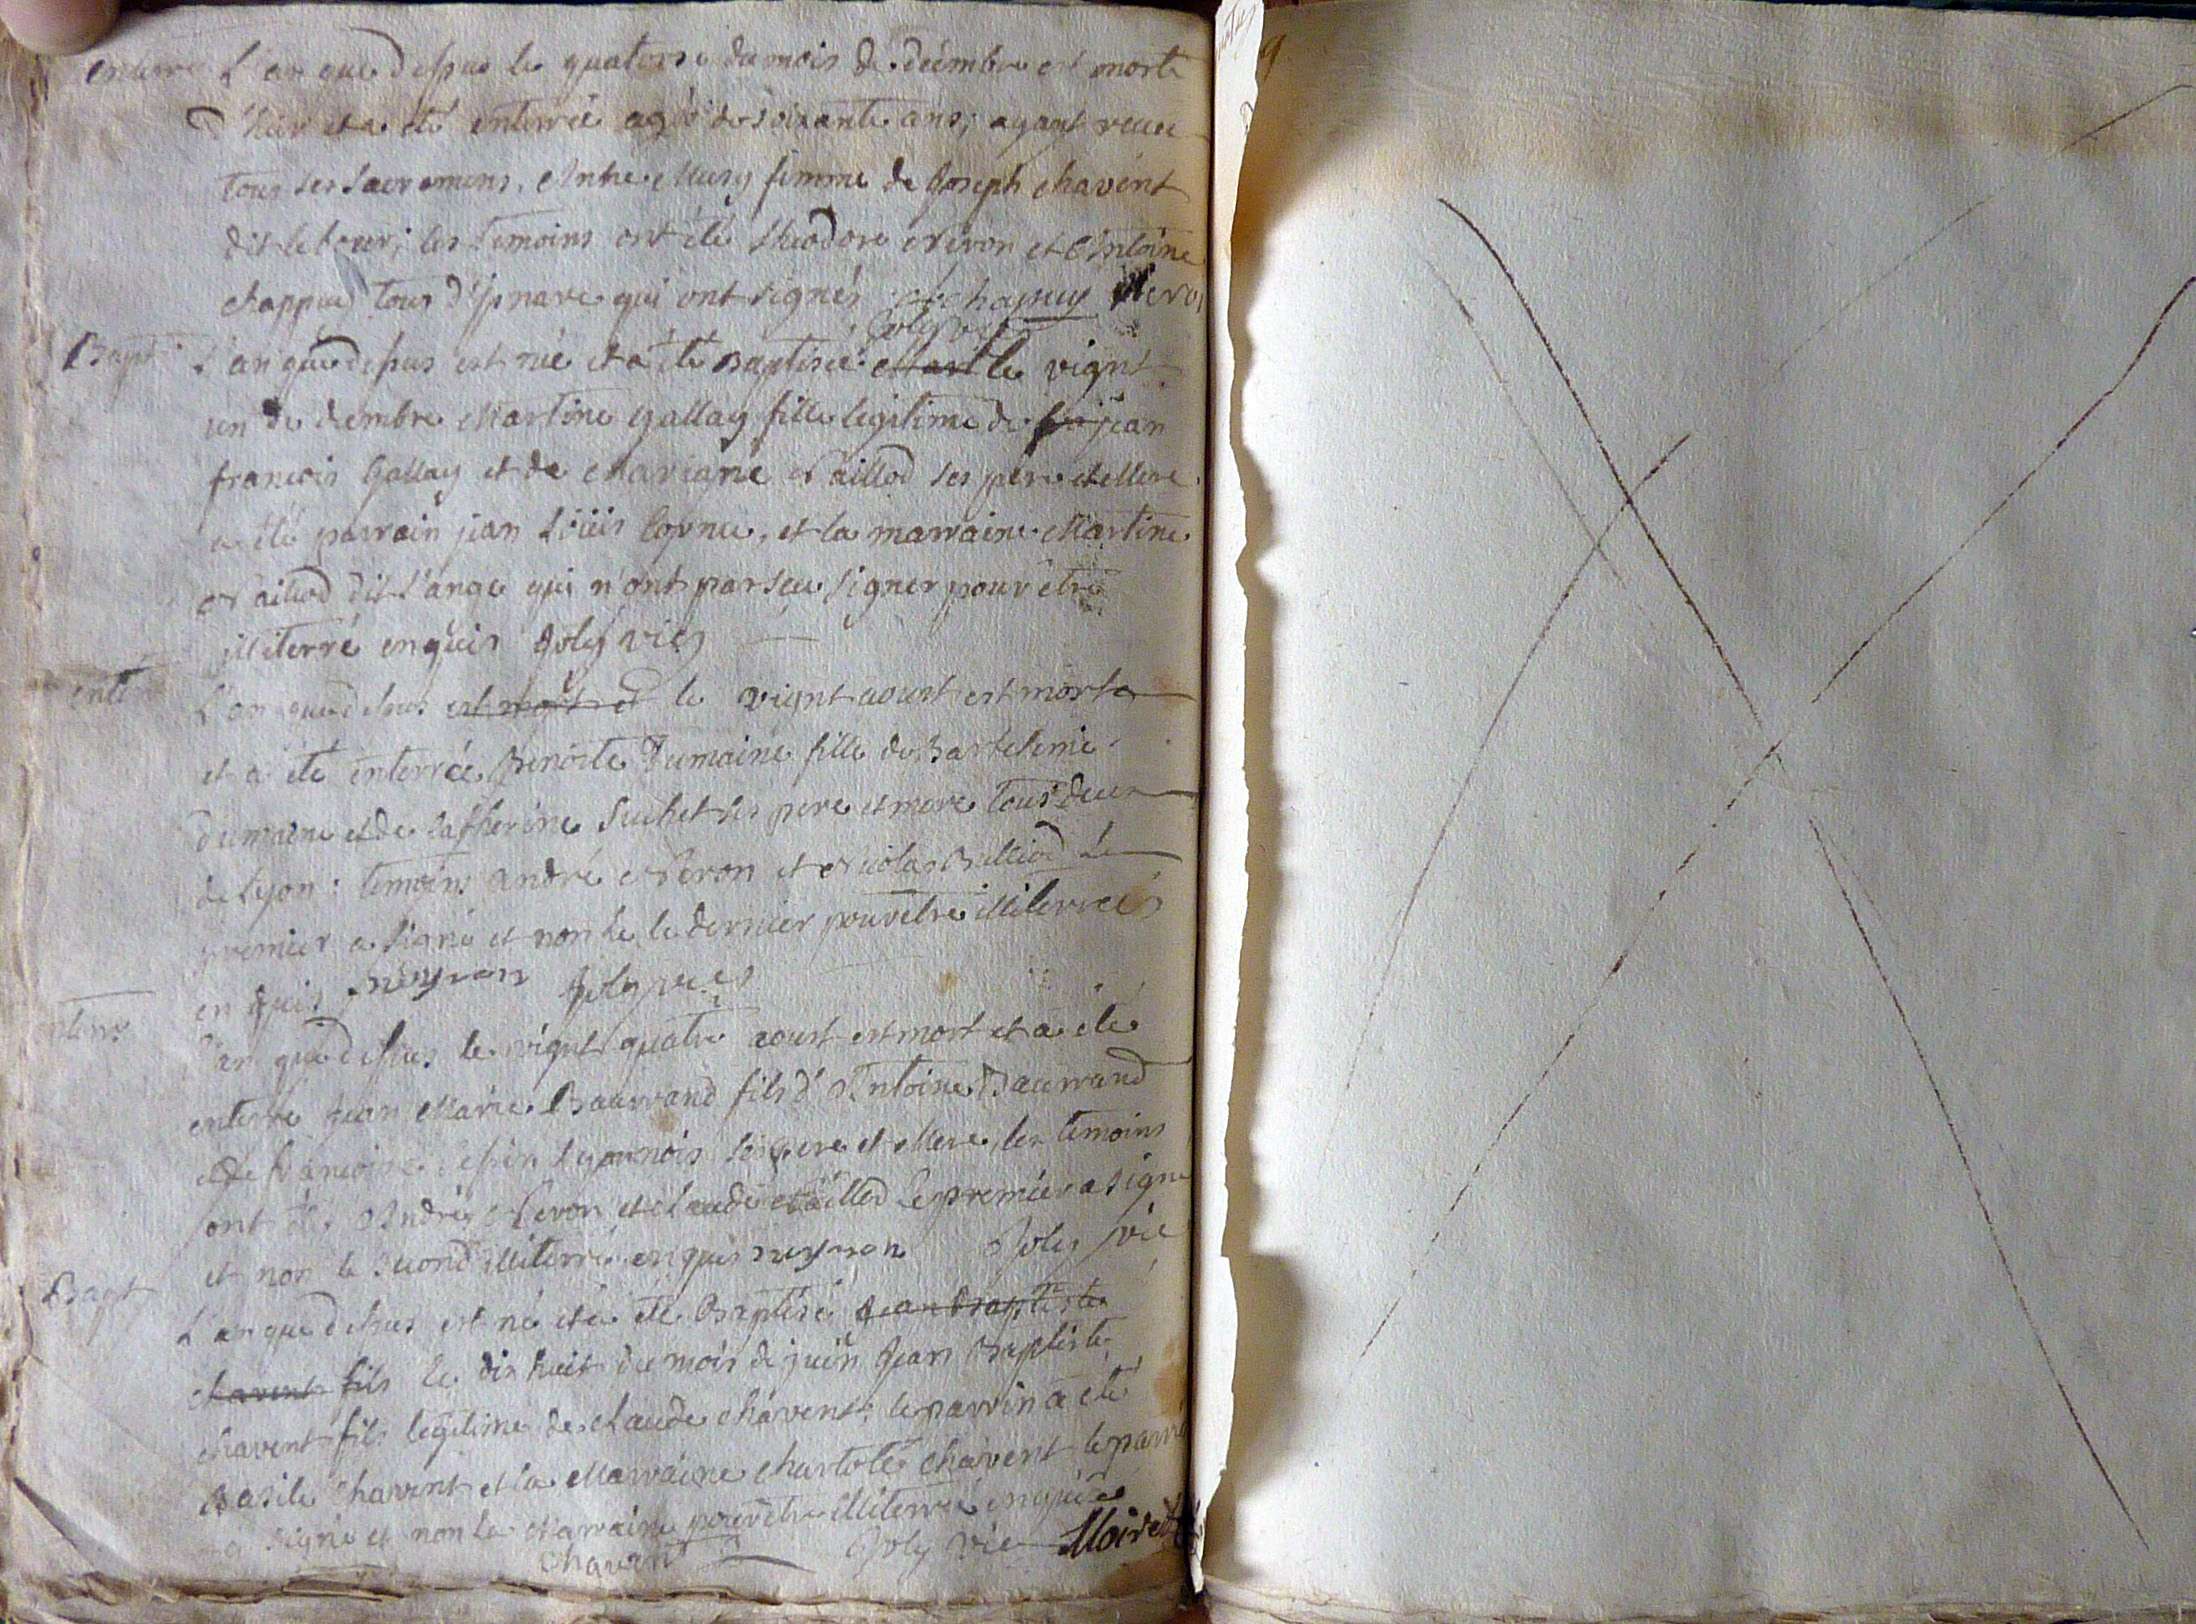 enterre L'an que dessus le quatorse du mois de décembre est morte
et a eté enterrée agée de soixante ans, ayant receu
tous ses sacremens, femme de Joseph Chavent
dit les temoins ont été theodore Neron et Antoine
Chappuy tous qui ont signés Chapuy Nero
Joly vic
Bapt L'an que dessus est née et a été Baptisée le vignt
un de dembre Martine Gallay fille legitime de jean
francois Gallay et de Mariane Naillod ses pere et Mere
a été parrain jean Loüis Cornu, et la marraine Martine
Naillod dit L'ange qui n'ont pas sceu signer pour être
illiterré enquis Joly vic
ent L'an que dessus est mort et le vignt aoust est morte
et a été enterrée Benoite Dumaine fille de Bartelemie
dumaine et de Catherine Suchet ses pere et mere tous deux
de Lyon : temoins andré Neron et Nicolas Billiod Le
premier a signé et non le dernier pour etre illiterrées
enquis neyron Joly vic
enterre L'an que dessus le vignt quatre aoust est mort et a été
enterre Jean Marie Baurrand fils d'Antoine Baurrand
et de francoise Lyonnois ses pere et Mere, les temoins
ont été André Neron et Claude Naillod Le premier a signe
et non le second illiterré enquis neyron Joly vic
Bapt L'an que dessus est né et a été Baptisé Jean Baptiste
chavent fils le dix huit du mois de juin Jean Baptiste
chavent fils legitime de Claude Chavent; le parrin a eté
Basile Chavent et la Marraine Charlote Chavent le parri
a signé et non la Marraine pour etre illiterré enquise
Chavent Joly vic Moiret